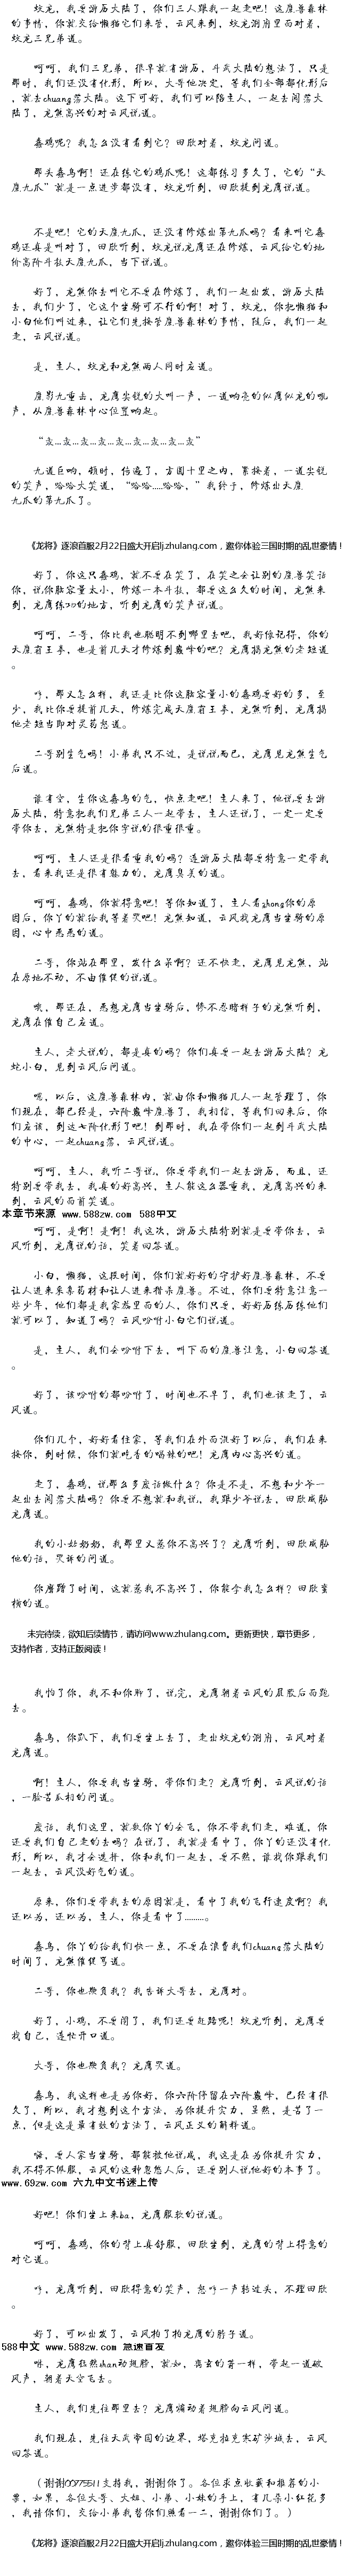 蛟龙，我要游历大陆了，你们三人跟我一起走吧！这魔兽森林
的事情，你就交给懒猫它们来管，云风来到，蛟龙洞府里面对着，
蛟龙三兄弟道。
呵呵，我们三兄弟，很早就有游历，斗武大陆的想法了，只是
那时，我们还没有化形，所以，大哥他决定，等我们全部都化形后
，就去chuang荡大陆。这下可好，我们可以陪主人，一起去闯荡大
陆了，龙熊高兴的对云风说道。
喜鸡呢？我怎么没有看到它？田欣对着，蛟龙问道。
那头喜鸟啊！还在练它的鸡爪呢！这都练习多久了，它的“天
魔九爪”就是一点进步都没有，蛟龙听到，田欣提到龙鹰说道。
不是吧！它的天魔九爪，还没有修炼出第九爪吗？看来叫它喜
鸡还真是叫对了，田欣听到，蛟龙说龙鹰还在修炼，云风给它的地
价高阶斗技天魔九爪，当下说道。
好了，龙熊你去叫它不要在修炼了，我们一起出发，游历大陆
去，我们少了，它这个坐骑可不行的啊！对了，蛟龙，你把懒猫和
小白他们叫过来，让它们先接管魔兽森林的事情，随后，我们一起
走，云风说道。
是，主人，蛟龙和龙熊两人同时应道。
魔影九重击，龙鹰尖锐的大叫一声，一道响亮的似鹰似龙的吼
声，从魔兽森林中心位置响起。
“轰…轰…轰…轰…轰…轰…轰…轰…轰”
九道巨响，顿时，传遍了，方圆十里之内，紧接着，一道尖锐
的笑声，哈哈大笑道，“哈哈……哈哈，”我终于，修炼出天魔
九爪的第九爪了。
《龙将》逐浪首服2月22日盛大开启lj.zhulang.com，邀你体验三国时期的乱世豪情！
好了，你这只喜鸡，就不要在笑了，在笑之会让别的魔兽笑话
你，说你脑容量太小，修炼一本斗技，都要这么久的时间，龙熊来
到，龙鹰练功的地方，听到龙鹰的笑声说道。
呵呵，二哥，你比我也聪明不到哪里去吧，我好像记得，你的
天魔霸王拳，也是前几天才修炼到巅峰的吧？龙鹰揭龙熊的老短道
。
哼，那又怎么样，我还是比你这脑容量小的喜鸡要好的多，至
少，我比你要提前几天，修炼完成天魔霸王拳，龙熊听到，龙鹰揭
他老短当即对灵药怒道。
二哥别生气吗！小弟我只不过，是说说而已，龙鹰见龙熊生气
后道。
谁有空，生你这喜鸟的气，快点走吧！主人来了，他说要去游
历大陆，特意把我们兄弟三人一起带去，主人还说了，一定一定要
带你去，龙熊特是把你字说的很重很重。
呵呵，主人还是很看重我的吗？连游历大陆都要特意一定带我
去，看来我还是很有魅力的，龙鹰臭美的道。
呵呵，喜鸡，你就得意吧！等你知道了，主人看zhong你的原
因后，你丫的就给我等着哭吧！龙熊知道，云风找龙鹰当坐骑的原
因，心中恶恶的道。
二哥，你站在那里，发什么呆啊？还不快走，龙鹰见龙熊，站
在原地不动，不由催促的说道。
哦，那还在，恶想龙鹰当坐骑后，惨不忍睹样子的龙熊听到，
龙鹰在催自己应道。
主人，老大说的，都是真的吗？你们真要一起去游历大陆？龙
蛇小白，见到云风后问道。
嗯，以后，这魔兽森林内，就由你和懒猫几人一起管理了，你
们现在，都已经是，六阶巅峰魔兽了，我相信，等我们回来后，你
们应该，到这七阶化形了吧！到那时，我在带你们一起到斗武大陆
的中心，一起chuang荡，云风说道。
呵呵，主人，我听二哥说，你要带我们一起去游历，而且，还
特别要带我去，我真的好高兴，主人能这么器重我，龙鹰高兴的来
到，云风的面前笑道。
本章节来源 www.588zw.com 588中文
呵呵，是啊！是啊！我这次，游历大陆特别就是要带你去，云
风听到，龙鹰说的话，笑着回答道。
小白，懒猫，这段时间，你们就好好的守护好魔兽森林，不要
让人进来采集药材和让人进来猎杀魔兽。不过，你们要特意注意一
些少年，他们都是我家族里面的人，你们只要，好好历练历练他们
就可以了，知道了吗？云风吩咐小白它们说道。
是，主人，我们会吩咐下去，叫下面的魔兽注意，小白回答道
。
好了，该吩咐的都吩咐了，时间也不早了，我们也该走了，云
风道。
你们几个，好好看住家，等我们在外面混好了以后，我们在来
接你，到时候，你们就吃香的喝辣的吧！龙鹰内心高兴的道。
走了，喜鸡，说那么多废话做什么？你是不是，不想和少爷一
起出去闯荡大陆吗？你要不想就和我说，我跟少爷说去，田欣威胁
龙鹰道。
我的小姑奶奶，我那里又惹你不高兴了？龙鹰听到，田欣威胁
他的话，哭诉的问道。
你磨蹭了时间，这就惹我不高兴了，你能拿我怎么样？田欣蛮
横的道。
未完待续，欲知后续情节，请访问www.zhulang.com。更新更快，章节更多，
支持作者，支持正版阅读！
我怕了你，我不和你聊了，说完，龙鹰朝着云风的屁股后面跑
去。
喜鸟，你趴下，我们要坐上去了，走出蛟龙的洞府，云风对着
龙鹰道。
啊！主人，你要我当坐骑，带你们走？龙鹰听到，云风说的话
，一脸苦瓜相的问道。
废话，我们这里，就数你丫的会飞，你不带我们走，难道，你
还要我们自己走的去吗？在说了，我就是看中了，你丫的还没有化
形，所以，我才会选择，你和我们一起去，要不然，谁找你跟我们
一起去，云风没好气的道。
原来，你们要带我去的原因就是，看中了我的飞行速度啊？我
还以为，还以为，主人，你是看中了………。
喜鸟，你丫的给我们快一点，不要在浪费我们chuang荡大陆的
时间了，龙熊催促骂道。
二哥，你也欺负我？我告诉大哥去，龙鹰对。
好了，小鸡，不要闹了，我们还要赶路呢！蛟龙听到，龙鹰要
找自己，连忙开口道。
大哥，你也欺负我？龙鹰哭道。
喜鸟，我这样也是为你好，你六阶停留在六阶巅峰，已经有很
久了，所以，我才想到这个方法，为你提升实力，虽然，是苦了一
点，但是这是最有效的方法了，云风正义的解释道。
嗨，要人家当坐骑，都能被他说成，我这是在为你提升实力，
我不得不佩服，云风的这种忽悠人后，还要别人说他好的本事了。
www.69zw.com 六九中文书迷上传
好吧！你们坐上来ba，龙鹰服软的说道。
呵呵，喜鸡，你的背上真舒服，田欣坐到，龙鹰的背上得意的
对它道。
哼，龙鹰听到，田欣得意的笑声，怒哼一声转过头，不理田欣
。
好了，可以出发了，云风拍了拍龙鹰的脖子道。
588中文 www.588zw.com 急速首发
咻，龙鹰猛然shan动翅膀，就如，离玄的箭一样，带起一道破
风声，朝着天空飞去。
主人，我们先往那里去？龙鹰煽动着翅膀向云风问道。
我们现在，先往天武帝国的边界，塔克拉克寒矿沙域去，云风
回答道。
（谢谢00775511支持我，谢谢你了。各位求点收藏和推荐的小
票，如果，各位大哥、大姐、小弟、小妹的手上，有几朵小红花多
，我请你们，交给小弟我替你们照看一二，谢谢你们了。）
《龙将》逐浪首服2月22日盛大开启lj.zhulang.com，邀你体验三国时期的乱世豪情！